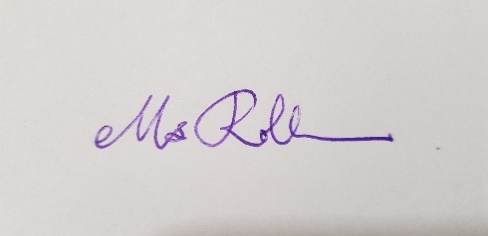 Ms Roll